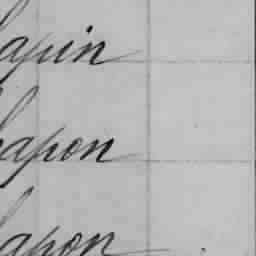 apin
apon
apon